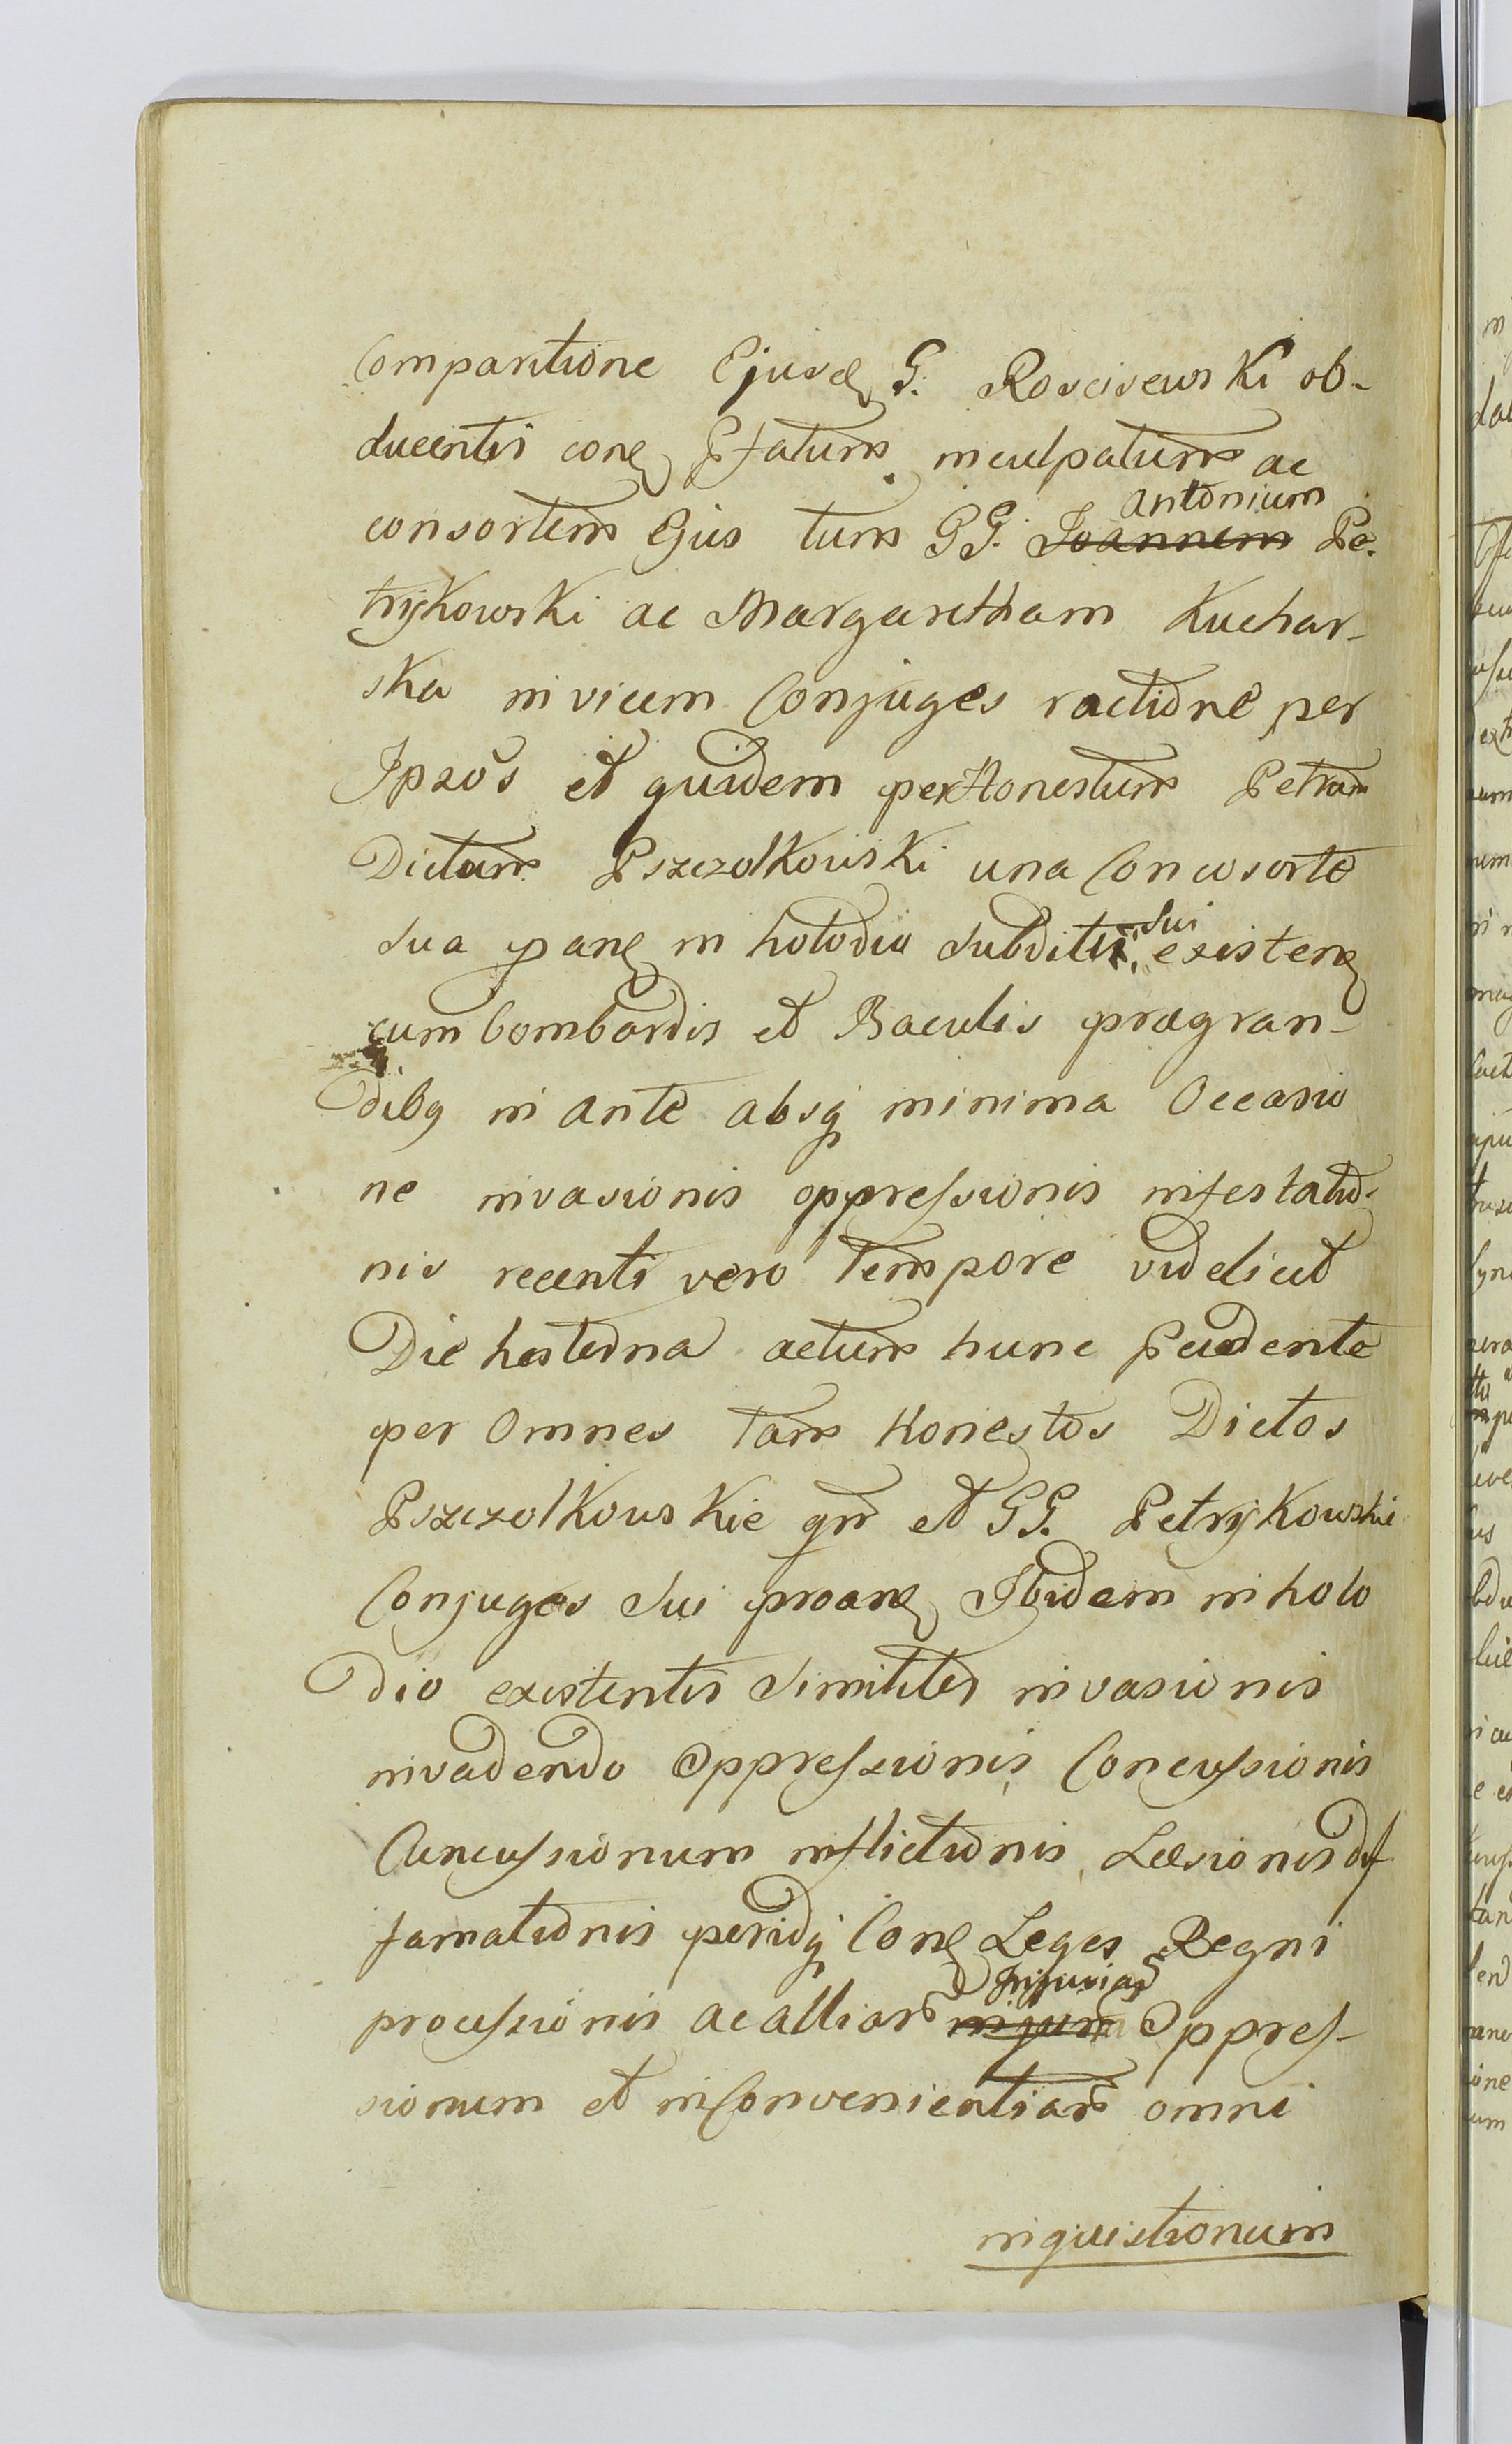 Comparitione Ejusd G. Rosciseuski ob-
ducentis con Pfatum inculpatum ac
consortem Ejus tum GG. Joannem Antonium Pe-
trykowski ac Margaretham Kuchar-
ska invicem Conjuges ractione per
Ipsos et quidem per Honestum Petrum
Dictum Pszczolkowski una Concosorte
sua pan in holodiu subditis sui existen
cum bombardis et Baculis prægran-
dibq in ante absq minima Occasio
ne invasionis oppressionis infestatio-
nis recenti vero tempore videlicet
Die hesterna actum hunc Pcedente
per Omnes tam Honestos Dictos
Pszczolkouskie qm et GG. Petrykowskie
Conjuges sui proan Ibidem in holo
dio existentis similiter invasionis
invadendo Oppressionis Concussionis
Concussionum inflictionis Læsionis dif
famationis peridq Con Leges Regni
processionis ac alliar injur Injuriar Oppres-
sionum et inConvenientiar omni
inquistionum